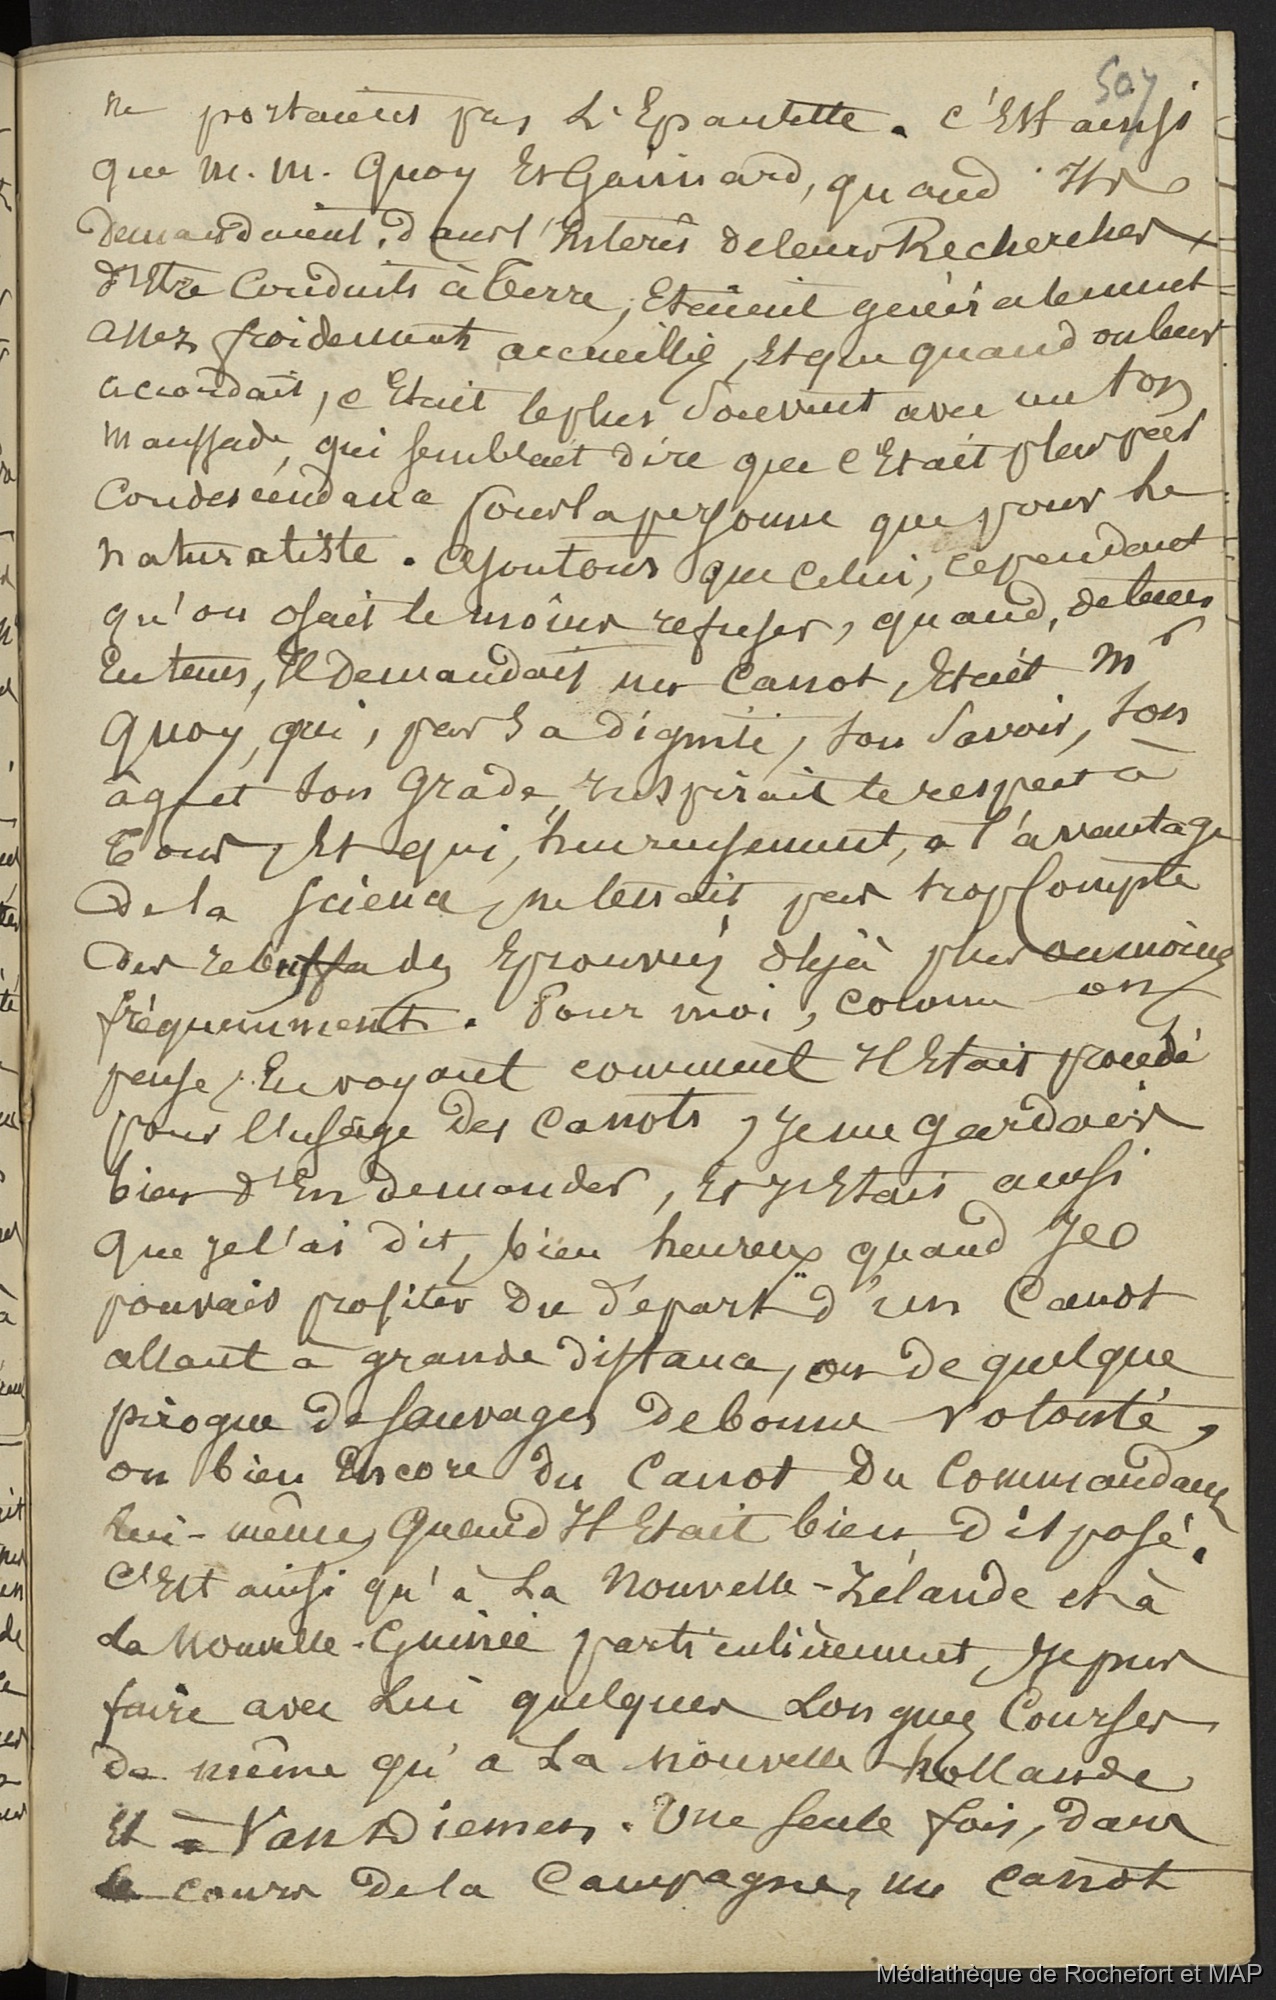 507
ne portaient pas L'Epaulette. C'Est ainsi
que M. M. Quoy Et Gaimard, quand Ils
Demandaient, dans l'Interêt de leurs Recherches
d'Etre Conduits à Terre, Etaient généralement
assez froidement accueillis, Et que quand on leur
accordait, c'Etait le plus Souvent avec un ton
maussade, qui semblait dire que c'Etait plus par
Condescendance pour la personne que pour le
naturaliste. Ajoutons que Celui, cependant
qu'on osait le moins refuser, quand, de
Il Demandait un Canot, Etait Mr
Quoy, qui, par sa dignité, son Savoir, son
âge et son Grade, Inspirait le respect à
Tous, Et qui, heureusement, a l'avantage
De la Science, ne tenait pas trop Compte
Des rebuffades Eprouvées déjà plus ou moins
fréquemment. Pour moi, comme on
pense, En voyant comment Il Etait procédé
pour l'usage Des Canots, Je me gardais
bien d'En demander, Et J'Etais ainsi
Que je l'ai Dit, bien heureux quand Je
pouvais profiter Du départ d'un Canot
allant à grande Distance, ou de quelque
pirogue de Sauvages De bonne Volonté,
ou bien Encore Du Canot Du Commandant
Lui-même, Quand Il Etait bien Disposé.
C'Est ainsi qu'à La Nouvelle-Zélande et à
la Nouvelle-Guinée particulièrement, Je pus
faire avec Lui quelques Longues Courses
De même qu'a La nouvelle hollande
Et à Van Diemen. Une Seule fois, Dans
le cours De la Campagne, un Canot
Médiathèque de Rochefort et MAP